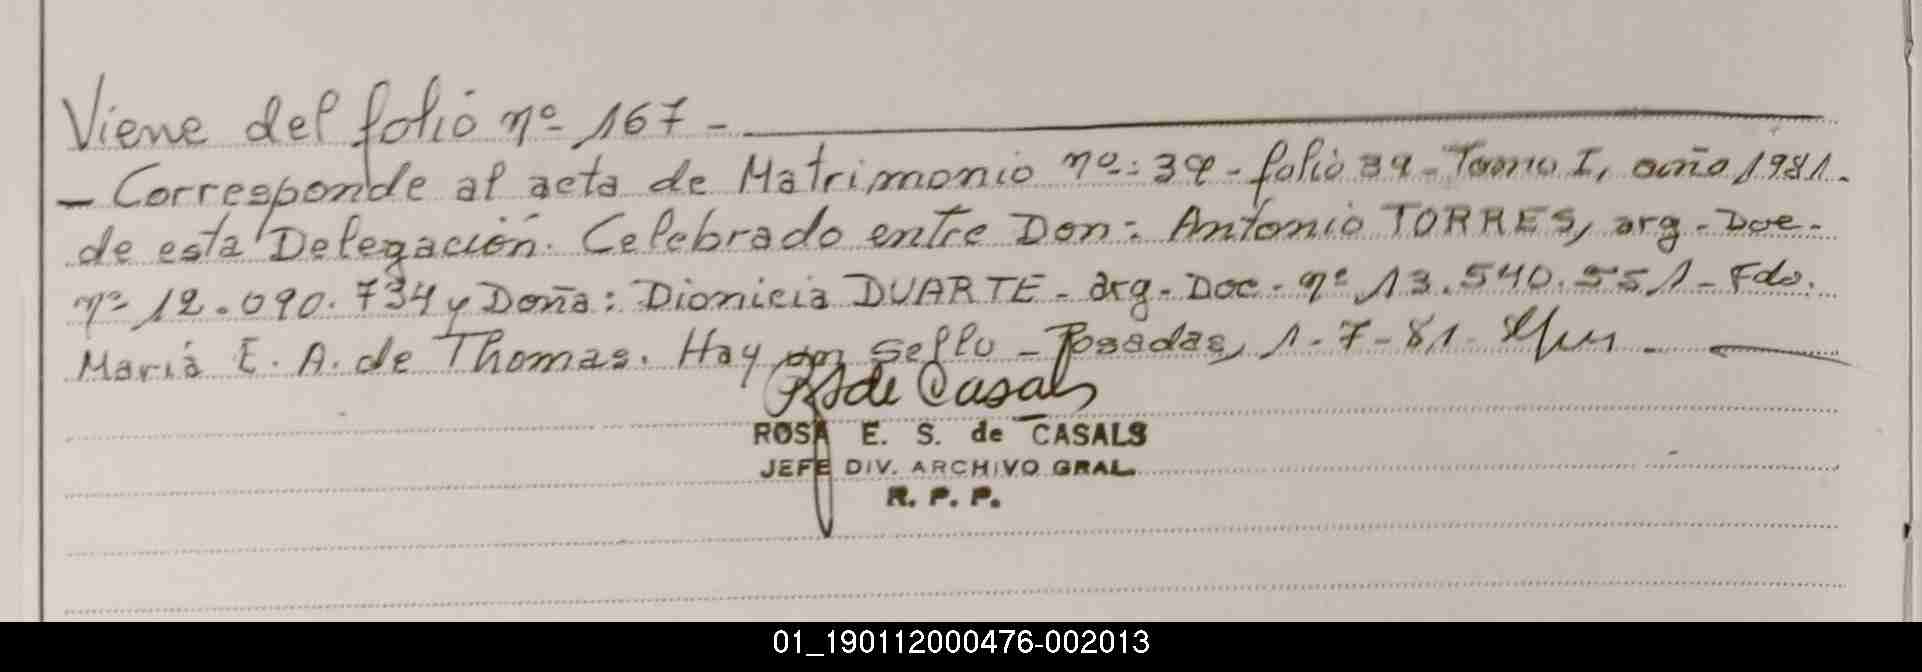 Viene del folio nº 167 -
- Corresponde al acta de Matrimonio nº: 39 - folio 39 - Tomo I, año 1981.
de esta Delegación. Celebrado entre Don: Antonio TORRES, arg - Doc -
nº 12.090.734 y Doña: Dionicia DUARTE - arg - Doc - nº 13.540.551 - Fdo.
Maria E. A. de Thomas. Hay un sello - Posadas, 1-7-81 -
RS de Casals
ROSA E. S. de CASALS
JEFE DIV. ARCHIVO GRAL.
R. P. P.
01_190112000476-002013